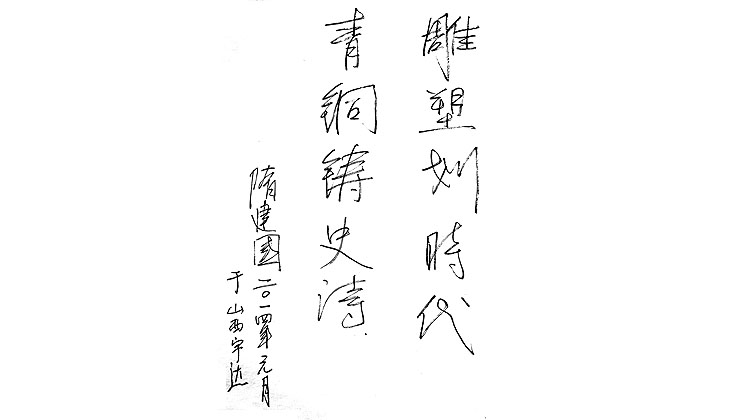 雕塑划時代
青铜铸史诗
隋建國二〇一四年元月
于山西宇达